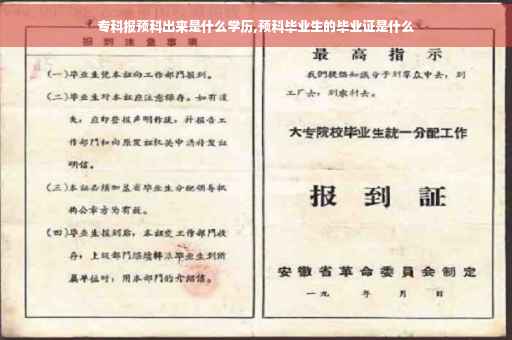 专科报预科出来是什么学历,预科毕业生的毕业证是什么
报到注意事项
(一)毕业生凭本证向工作部门报到。
(二)毕业生对本证应注意保存。如有遗
失,应即登报声明作废,并报告工
作部门和向原发证机关申请补发证
明信。
(三)本证必须加盖省毕业生分配领导机
构公章方为有效。
(四)毕业生报到后,本证交工作部门收
存;上级部门继续转派毕业生到所
属单位时,用本部门的介绍信。
最高指示
我们提倡知识分子到群众中去,到
工厂去,到农村去。
大专院校毕业生統一分配工作
报到証
安徽省革命委員会制定
一九 年 月 日